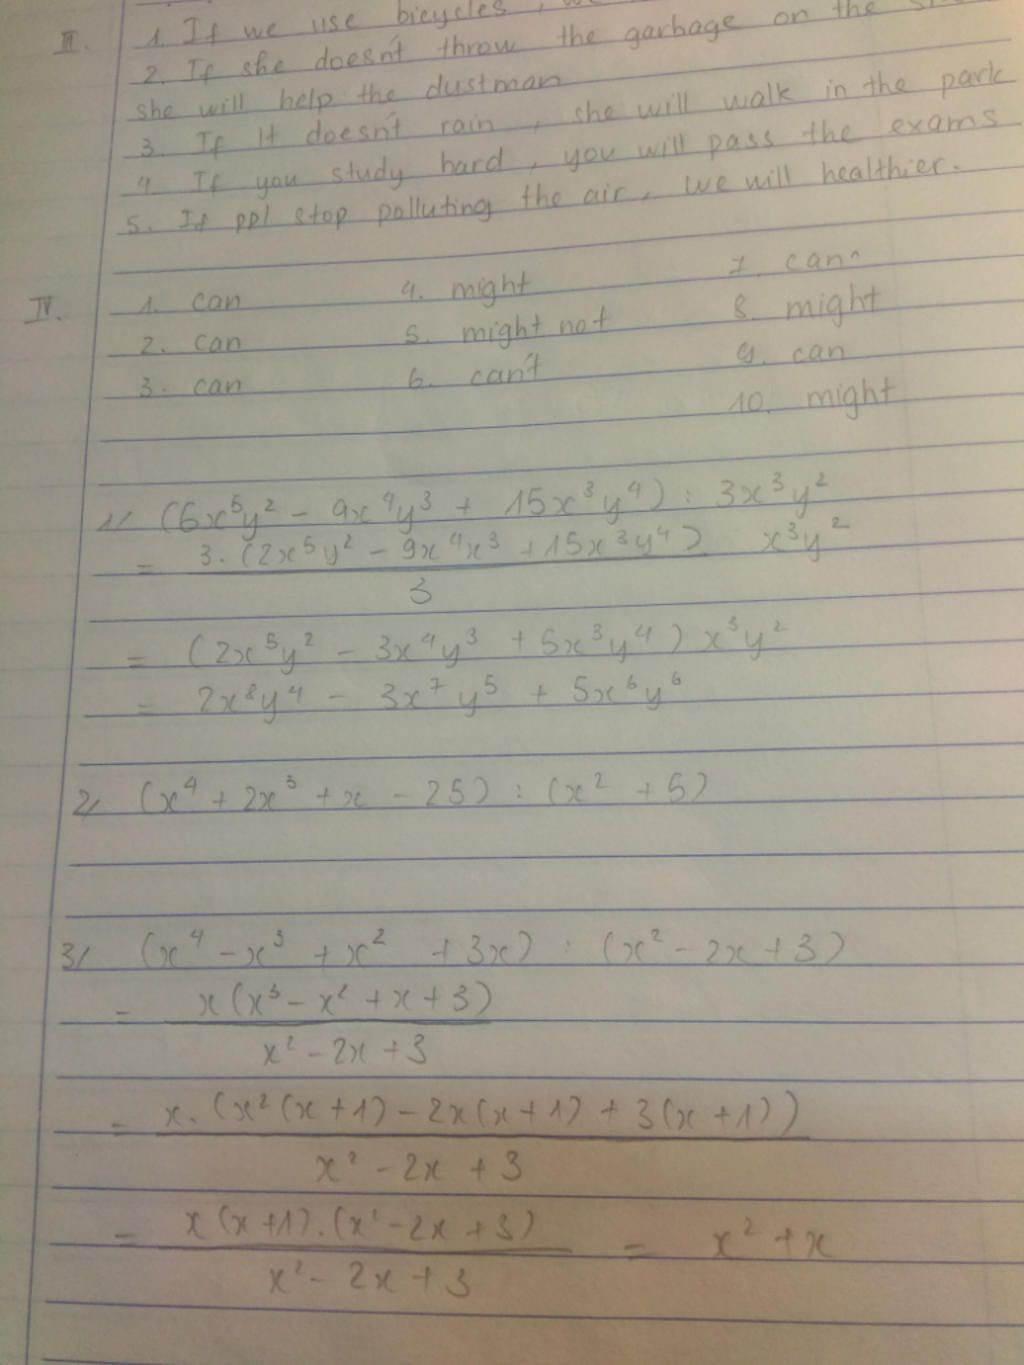 II. 1. If we use bicycles, we
2. If she doesn't throw the garbage on the
she will help the dustman
3. If It doesn't rain, she will walk in the park
4. If you study hard, you will pass the exams
5. If ppl stop polluting the air, we will healthier.
IV. 1. can 4. might 7. can
2. can 5. might not 8. might
3. can 6. can't 9. can
10. might
1/ (6x⁵y² - 9x⁴y³ + 15x³y⁴) : 3x³y²
= 3.(2x⁵y² - 9x⁴x³ + 15x³y⁴) x³y²
3
= (2x⁵y² - 3x⁴y³ + 5x³y⁴) x³y²
= 2x⁸y⁴ - 3x⁷y⁵ + 5x⁶y⁶
2/ (x⁴ + 2x³ + x - 25) : (x² + 5)
3/ (x⁴ - x³ + x² + 3x) : (x² - 2x + 3)
= x(x³ - x² + x + 3)
x² - 2x + 3
= x.(x²(x+1) - 2x(x+1) + 3(x+1))
x² - 2x + 3
= x(x+1).(x² - 2x + 3) = x² + x
x² - 2x + 3